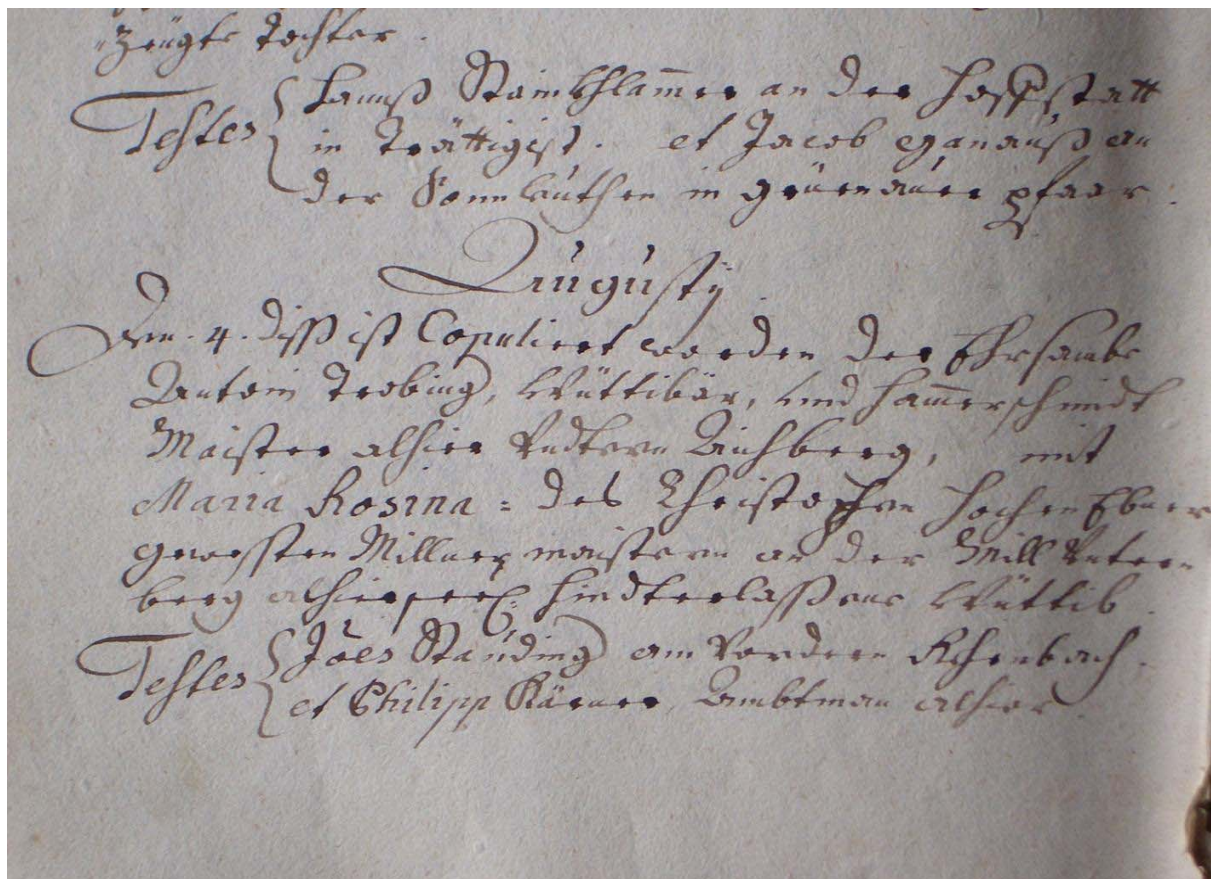 Zeügte Tochter.
Testes Hannß Stainkhlamer an der Hoffstatt
in Trättigist. et Jacob an
der Sonnleuthen in Grüenauer pfaar.
Augusty
Den. 4. diß ist Copuliert worden der Ehrsambe
Antoni Trobing, Wüttiber, und Hammerschmidt
Maister alhier Undtern Aichberg, mit
Maria Rosina: des Christophen Hochen Ebner
gewesten Millner maistern an der Mill Untern
berg alhier seel: hindterlaßene Wüttib.
Testes Joes Stauding am Vordern
et Philipp Kärner, Ambtman alhier.